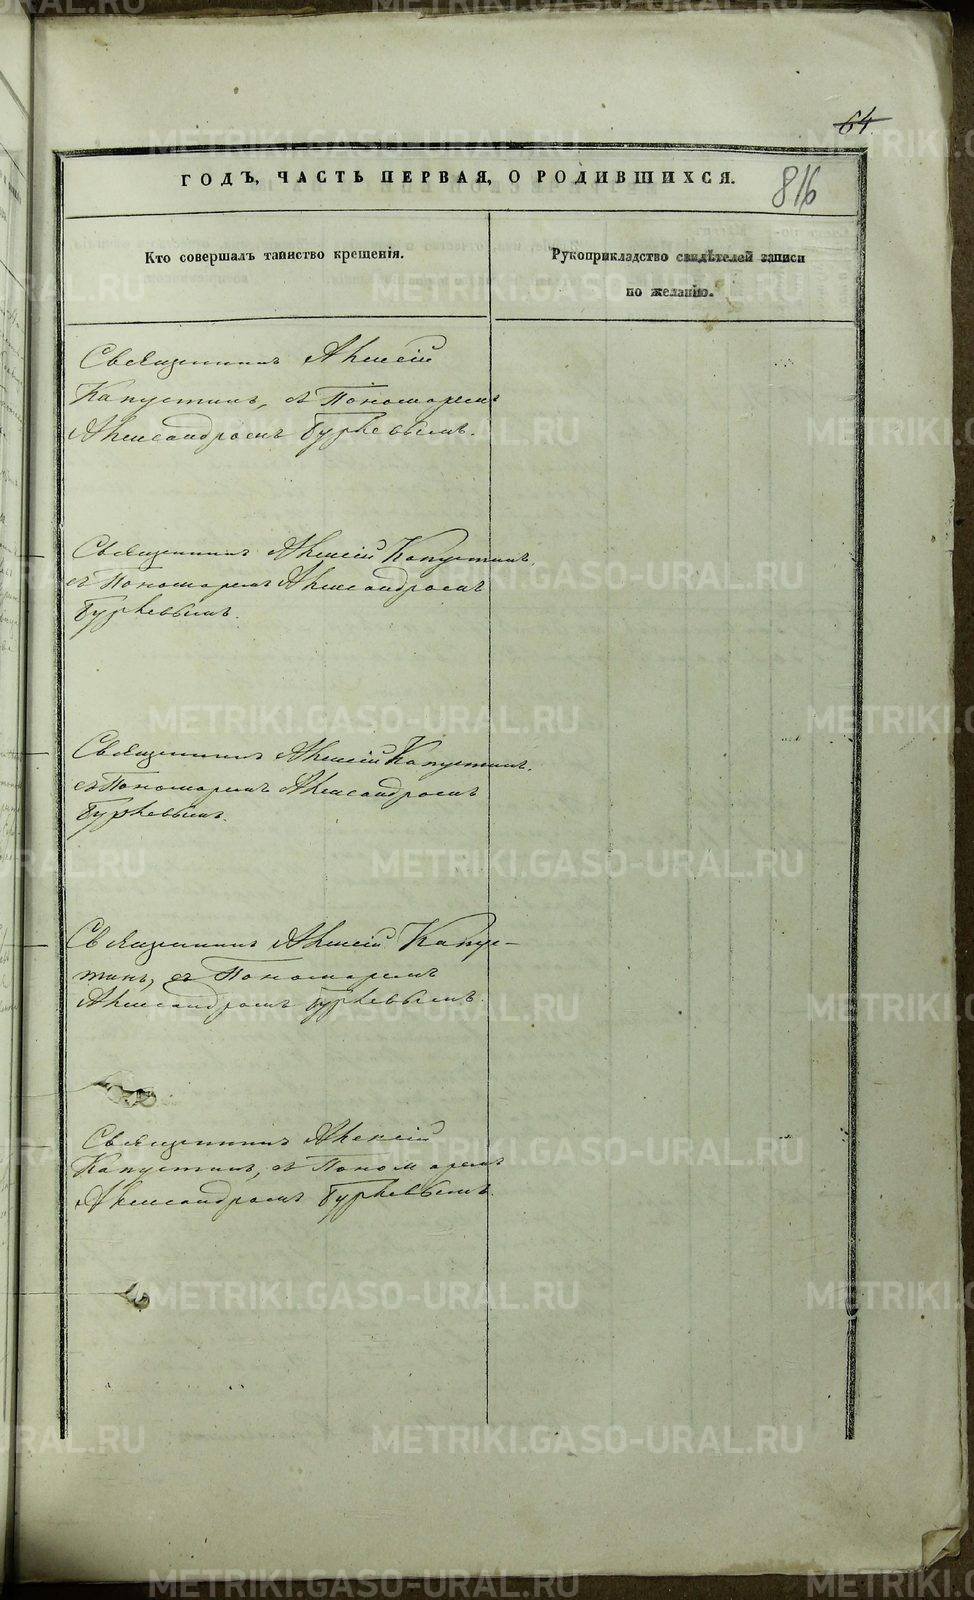 64
ГОДЪ, ЧАСТЬ ПЕРВАЯ, О РОДИВШИХСЯ.
816
Кто совершалъ таинство крещенія.
Рукоприкладство свидѣтелей записи
по желанію.
Священникъ Алексій
Капустинъ, съ Пономаремъ
Александромъ Бурševымъ.
Священникъ Алексій Капустинъ,
съ Пономаремъ Александромъ
Священникъ Алексій Капустинъ,
съ Пономаремъ Александромъ
Священникъ Алексій Капус-
тинъ, съ Пономаремъ
Александромъ
Священникъ Алексій
Капустинъ, съ Пономаремъ
Александромъ
METRIKI.GASO-URAL.RU